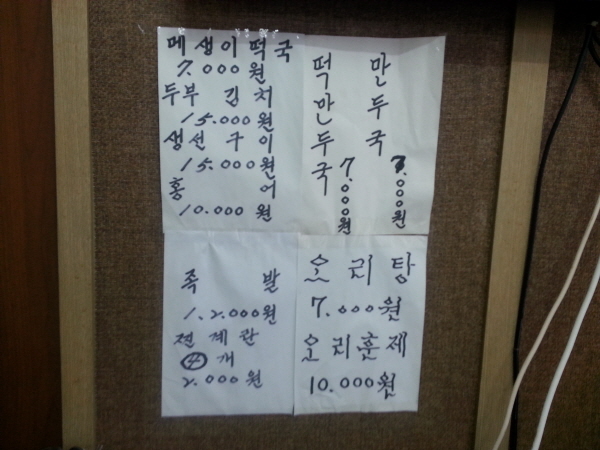 메생이떡국
7.000원
두부 김치
15.000원
생선 구이
15.000원
홍 어
10.000 원
떡만두국 7,000원
만두국 7,000원
족 발
1.2.000원
젼계란
④개
2.000원
오리탕
7.000원
오리훈제
10.000원